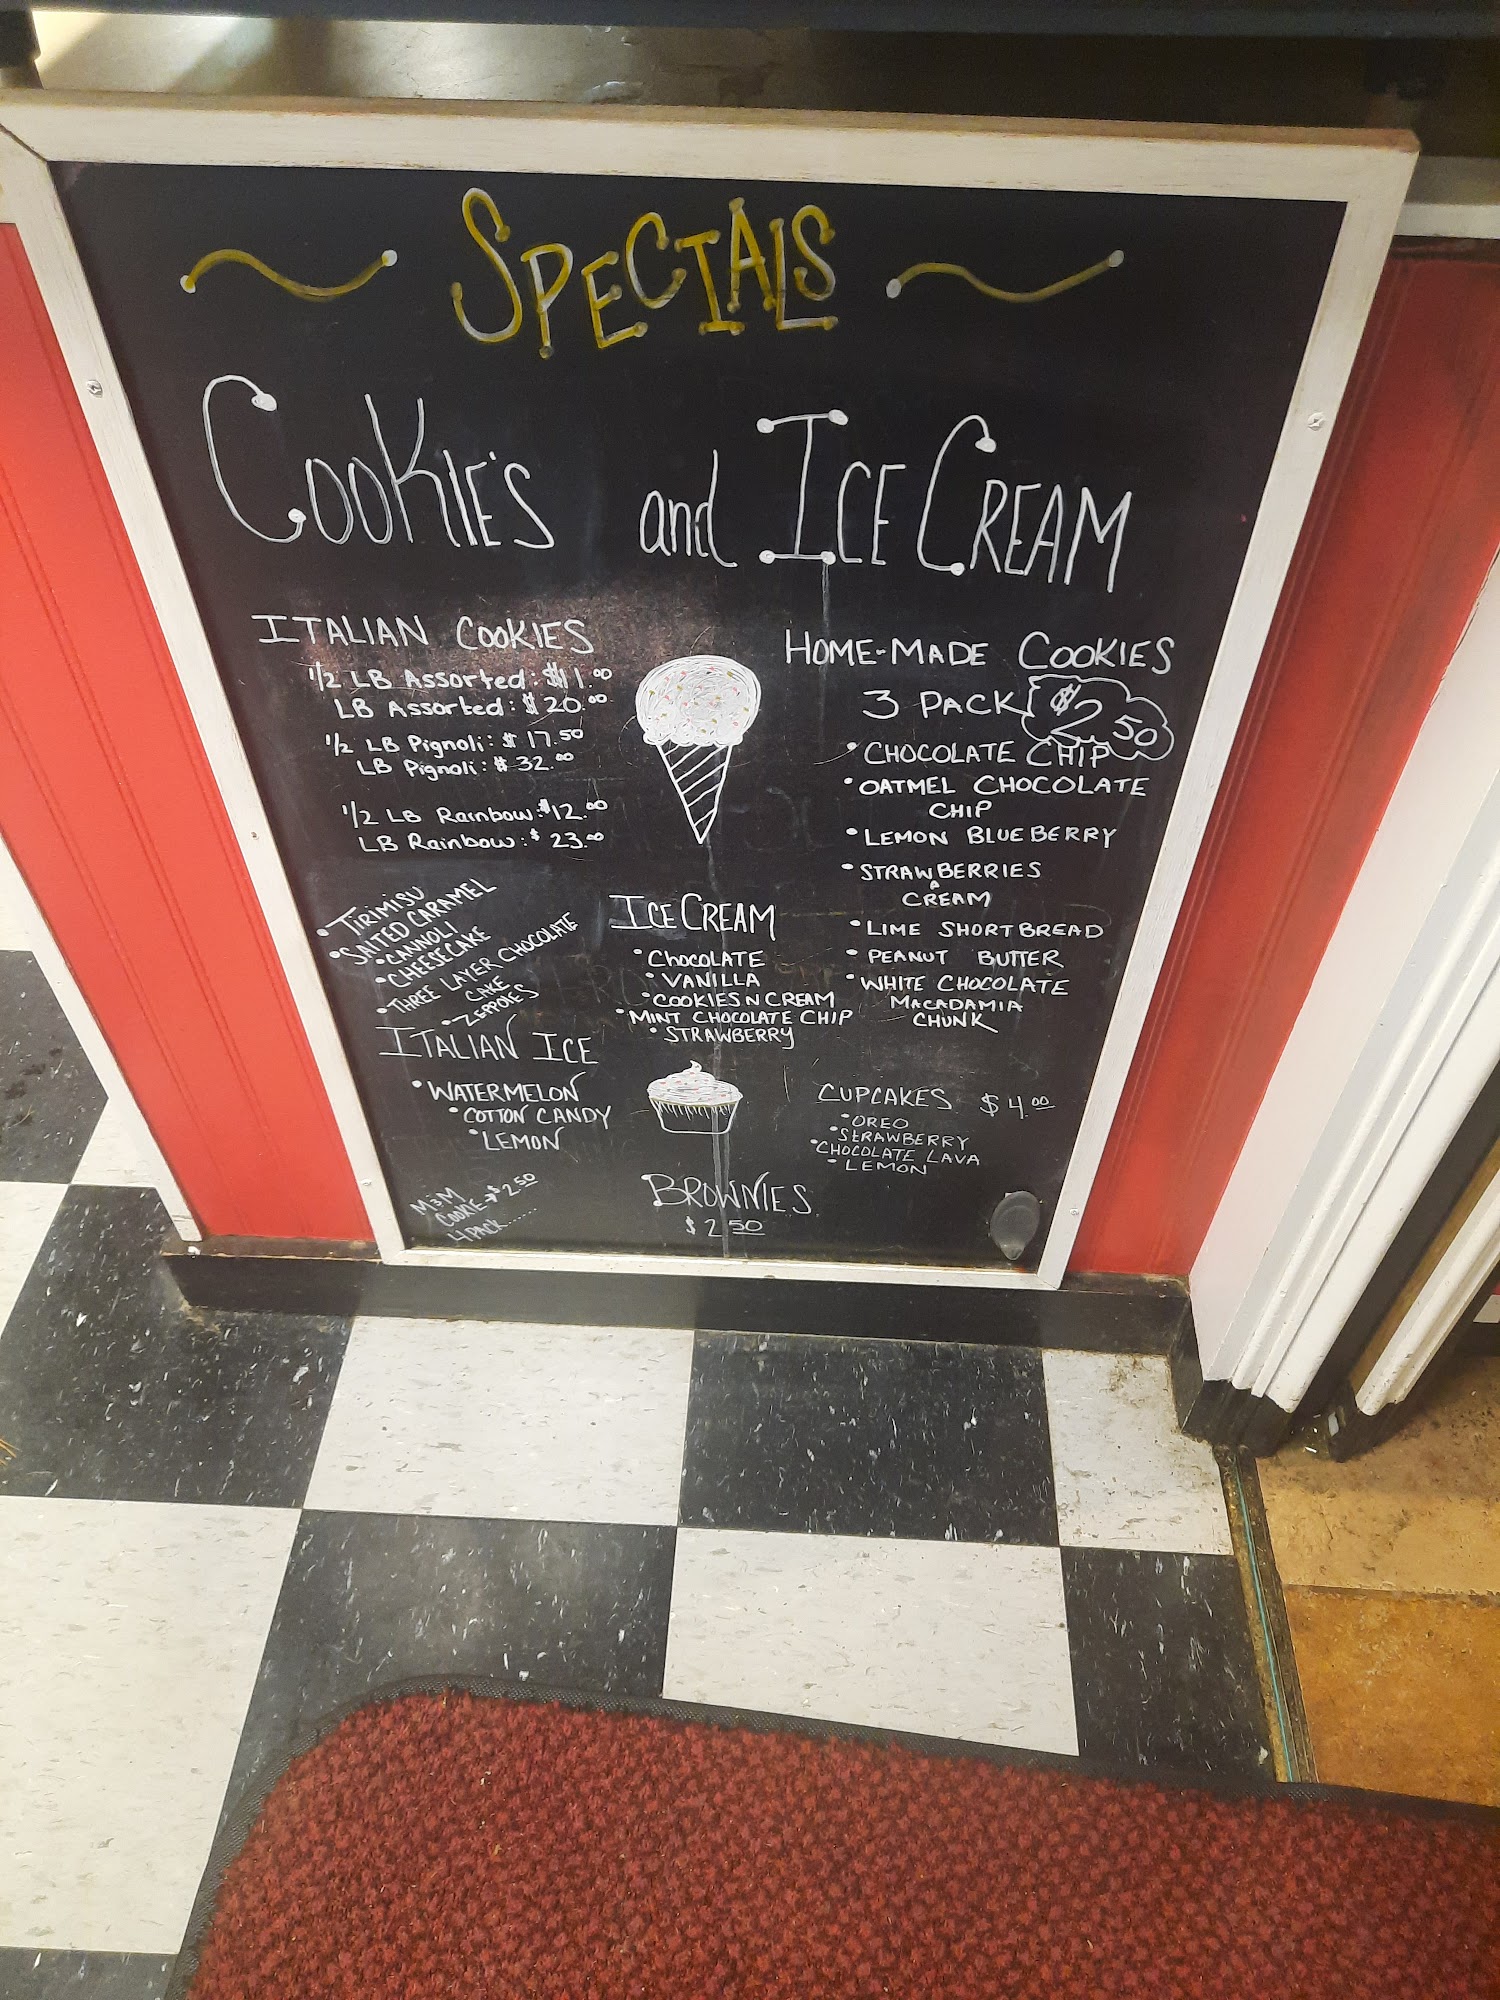 SPECIALS
COOKIE'S and ICE CREAM
ITALIAN COOKIES
1/2 LB Assorted: $11.00
LB Assorted: $20.00
1/2 LB Pignoli: $17.50
LB Pignoli: $32.00
1/2 LB Rainbow: $12.00
LB Rainbow: $23.00
• TIRIMISU
• SALTED CARAMEL
• CANNOLI
• CHEESECAKE
• THREE LAYER CHOCOLATE
CAKE
• ZEPPOLES
ITALIAN ICE
• WATERMELON
• COTTON CANDY
• LEMON
M&M
COOKIE→$2.50
4 PACK......
ICE CREAM
• CHOCOLATE
• VANILLA
• COOKIES N CREAM
• MINT CHOCOLATE CHIP
• STRAWBERRY
BROWNIES
$2.50
HOME-MADE COOKIES
3 PACK $2.50
• CHOCOLATE CHIP
• OATMEL CHOCOLATE
CHIP
• LEMON BLUEBERRY
• STRAWBERRIES
&
CREAM
• LIME SHORTBREAD
• PEANUT BUTTER
• WHITE CHOCOLATE
MACADAMIA
CHUNK
CUPCAKES $4.00
• OREO
• STRAWBERRY
• CHOCOLATE LAVA
• LEMON